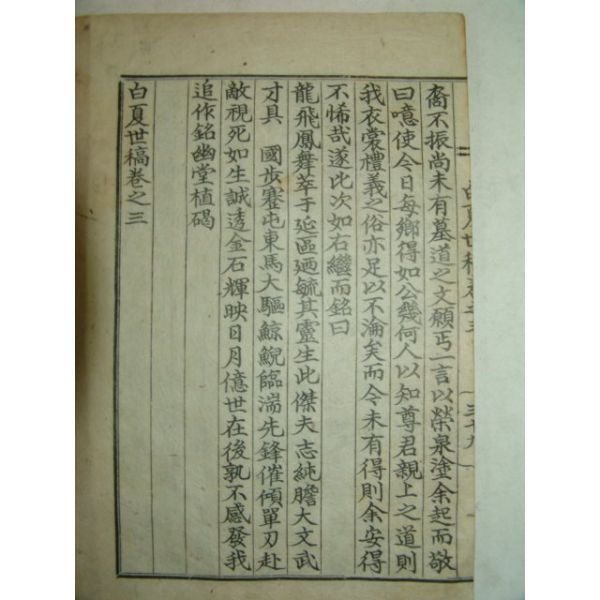 裔不振尚未有墓道之文願丐一言以榮泉塗余起而敬
曰噫使今日每鄉得如公幾何人以知尊君親上之道則
我衣裳禮義之俗亦足以不淪矣而今未有得則余安得
不悕哉遂此次如右繼而銘曰
龍飛鳳舞萃于延區廼毓其靈生此傑夫志純膽大文武
才具 國步蹇屯東馬大驅鯨鯢臨湍先鋒催傾單刃赴
敵視死如生誠透金石輝映日月億世在後孰不感發我
追作銘幽堂植碣
白夏世稿卷之三
白夏世稿卷之三
三十九